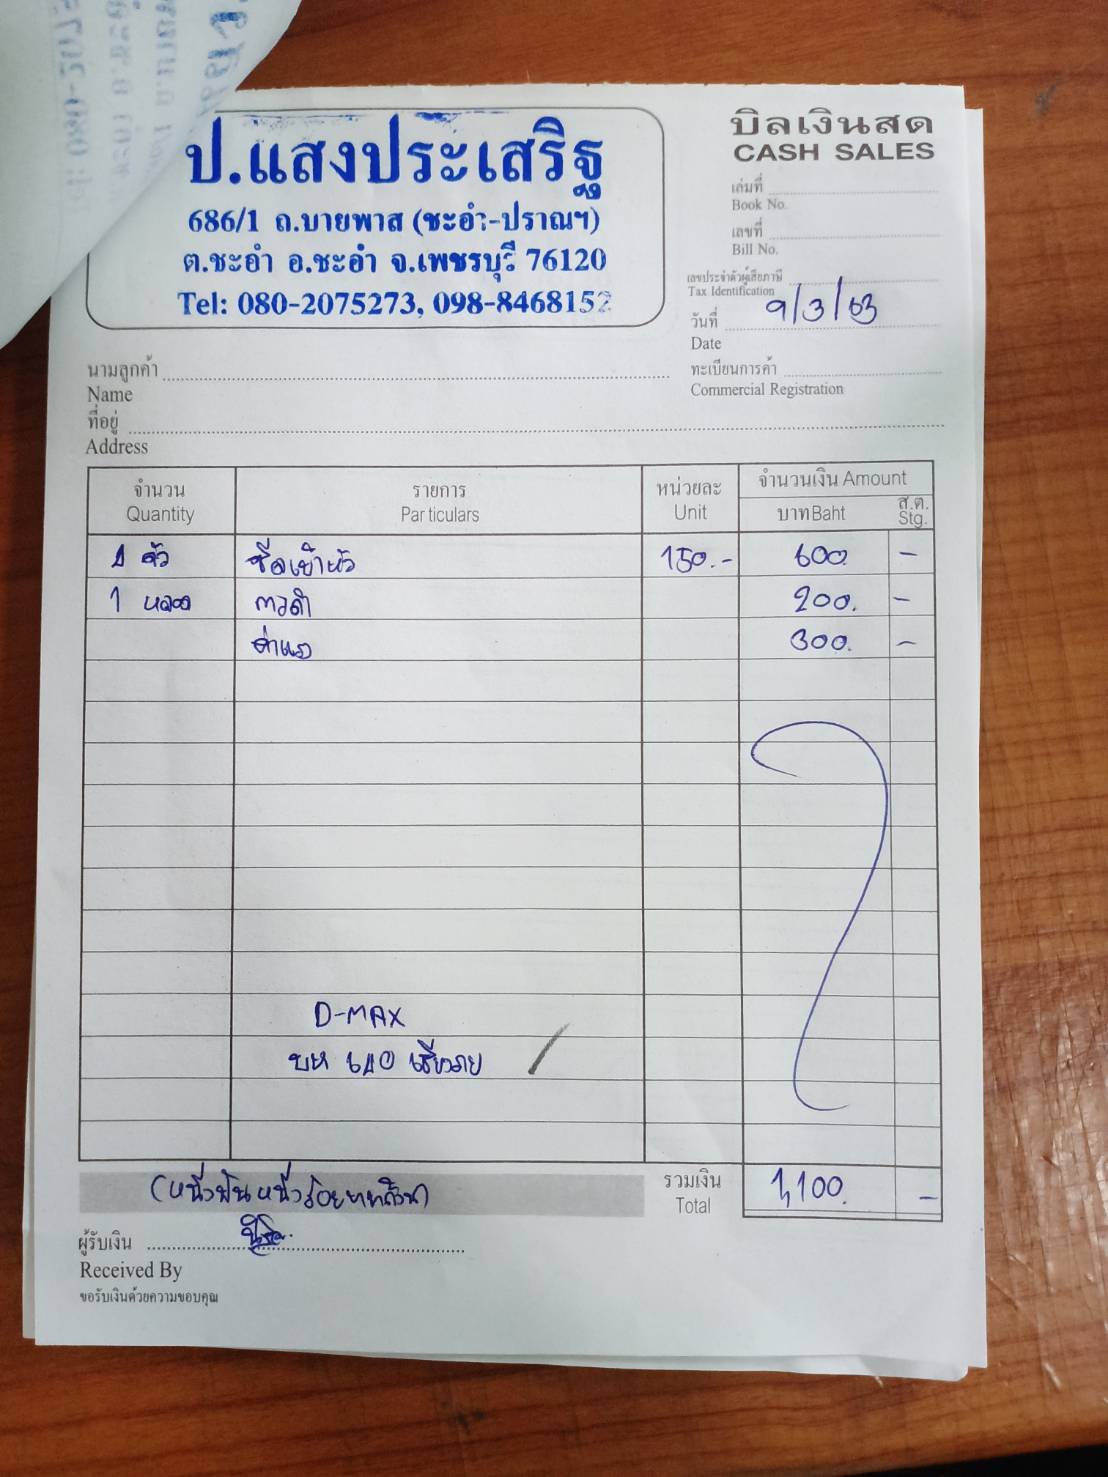 ป.แสงประเสริฐ
686/1 ถ.บายพาส (ชะอำ-ปราณฯ)
ต.ชะอำ อ.ชะอำ จ.เพชรบุรี 76120
Tel: 080-2075273, 098-8468152
บิลเงินสด
CASH SALES
เล่มที่
Book No.
เลขที่
Bill No.
เลขประจำตัวผู้เสียภาษี
Tax Identification
วันที่ 9/3/63
Date
ทะเบียนการค้า
Commercial Registration
นามลูกค้า
Name
ที่อยู่
Address
จำนวน รายการ หน่วยละ จำนวนเงิน Amount
Quantity Particulars Unit บาท Baht ส.ต. Stg.
ตัว 150.- 600. -
1 หลอด กาวดำ 200. -
ค่าแรง 300. -
D-MAX
บห 640
(หนึ่งพันหนึ่งร้อยบาทถ้วน) รวมเงิน 1,100. -
Total
ผู้รับเงิน
Received By
ขอรับเงินด้วยความขอบคุณ